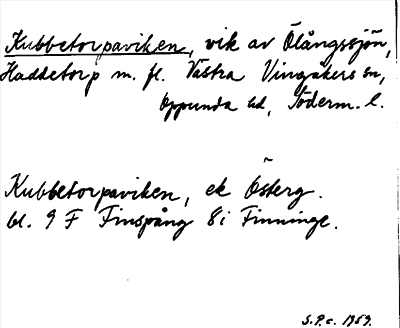 Kubbetorpaviken, vik av Ölångssjön,
Haddetorp m. fl. Västra Vingåkers sn,
Oppunda hd, Söderm. l.
Kubbetorpaviken, ek Österg.
bl. 9 F Finspång 8i Finninge.
S.P.c. 1959.